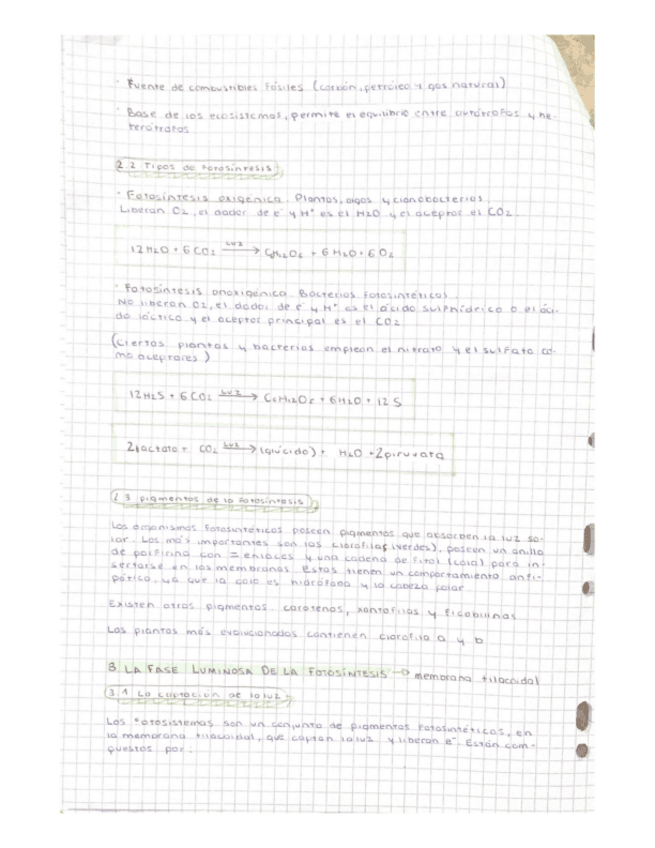 · Fuente de combustibles fósiles (carbón, petróleo y gas natural)
· Base de los ecosistemas, permite el equilibrio entre autótrofos y he-
terótrofos
2.2 Tipos de fotosíntesis
· Fotosíntesis oxigénica. Plantas, algas y cianobacterias.
Liberan O2, el dador de e⁻ y H⁺ es el H2O y el aceptor el CO2.
12H2O + 6CO2 luz → C6H12O6 + 6H2O + 6O2
· Fotosíntesis anoxigénica. Bacterias fotosintéticas.
No liberan O2, el dador de e⁻ y H⁺ es el ácido sulfhídrico o el áci-
do láctico y el aceptor principal es el CO2
(Ciertas plantas y bacterias emplean el nitrato y el sulfato co-
mo aceptores)
12H2S + 6CO2 luz → C6H12O6 + 6H2O + 12S
2lactato + CO2 luz → (glúcido) + H2O + 2piruvato
2.3 pigmentos de la fotosíntesis
Los organismos fotosintéticos poseen pigmentos que absorben la luz so-
lar. Los más importantes son las clorofilas (verdes), poseen un anillo
de porfirina con = enlaces y una cadena de fitol (cola) para in-
sertarse en las membranas. Estas tienen un comportamiento anfi-
pático, ya que la cola es hidrófoba y la cabeza polar
Existen otros pigmentos: carotenos, xantofilas y ficobilinas
Las plantas más evolucionadas contienen clorofila a y b
3 LA FASE LUMINOSA DE LA FOTOSÍNTESIS → membrana tilacoidal
3.1 La captación de la luz
Los fotosistemas son un conjunto de pigmentos fotosintéticos, en
la membrana tilacoidal, que captan la luz y liberan e⁻. Están com-
puestos por: